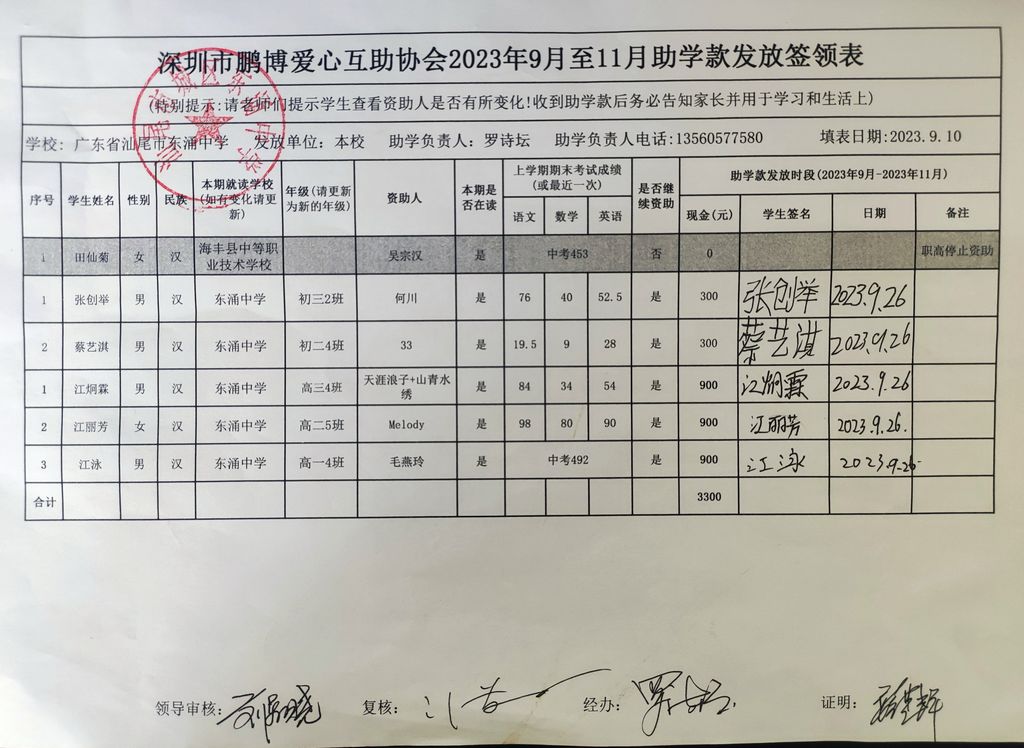 深圳市鹏博爱心互助协会2023年9月至11月助学款发放签领表
(特别提示:请老师们提示学生查看资助人是否有所变化!收到助学款后务必告知家长并用于学习和生活上)
学校: 广东省汕尾市东涌中学 发放单位: 本校 助学负责人: 罗诗坛 助学负责人电话:13560577580 填表日期:2023.9.10
序号 学生姓名 性别 民族 本期就读学校(如有变化请更新) 年级(请更新为新的年级) 资助人 本期是否在读 上学期期末考试成绩(或最近一次) 是否继续资助 助学款发放时段(2023年9月-2023年11月)
语文 数学 英语 现金(元) 学生签名 日期 备注
1 田仙菊 女 汉 海丰县中等职业技术学校 吴宗汉 是 中考453 否 0 职高停止资助
1 张创举 男 汉 东涌中学 初三2班 何川 是 76 40 52.5 是 300 张创举 2023.9.26
2 蔡艺淇 男 汉 东涌中学 初二4班 33 是 19.5 9 28 是 300 蔡艺淇 2023.9.26
1 江炯霖 男 汉 东涌中学 高三4班 天涯浪子+山青水绣 是 84 34 54 是 900 江炯霖 2023.9.26
2 江丽芳 女 汉 东涌中学 高二5班 Melody 是 98 80 90 是 900 江丽芳 2023.9.26.
3 江泳 男 汉 东涌中学 高一4班 毛燕玲 是 中考492 是 900 江泳 2023.9.26.
合计 3300
领导审核: 复核: 经办: 证明: